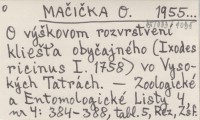 MAČIČKA O. 1955...
O výškovom rozvrstvení
kliešťa obyčajného (Ixodes
ricinus l. 1758) vo Vyso-
kých Tatrách. — Zoologické
a Entomologické Listy 4
nr 4: 384-388, tabl. 5, Rez, Zsf.